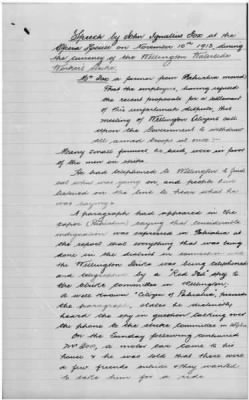 Speech by John Ignatius Fox at the
Opera House on November 10th 1913, during
the currency of the Wellington Waterside
Worker's Strike.
Mr Fox a farmer from Pahiatua moved
That the employers, having refused
the recent proposals for a settlement
of this unfortunate dispute this
meeting of Wellington Citizens call
upon the Government to withdraw
all armed troops at once :-
Many small farmers he said, were in favor
of the men on strike.
He had telephoned to Wellington to find
out what was going on, and people had
listened on the line to hear what he
was saying.
A paragraph had appeared in the
paper saying that considerable
indignation was expressed in Pahiatua at
the report that everything that was being
done in the district in connection with
the Wellington strike was being telephoned
and telegraphed by a "Red Fed" spy to
the strike committee in Wellington.
A well known Citizen of Pahiatua,
the paragraph, states he distinctly
heard the spy in question calling over
the phone to the strike committee in
On the Sunday following continued
Mr Fox, a motor car came to his
house & he was told that there were
a few friends outside & they wanted
to take him for a ride